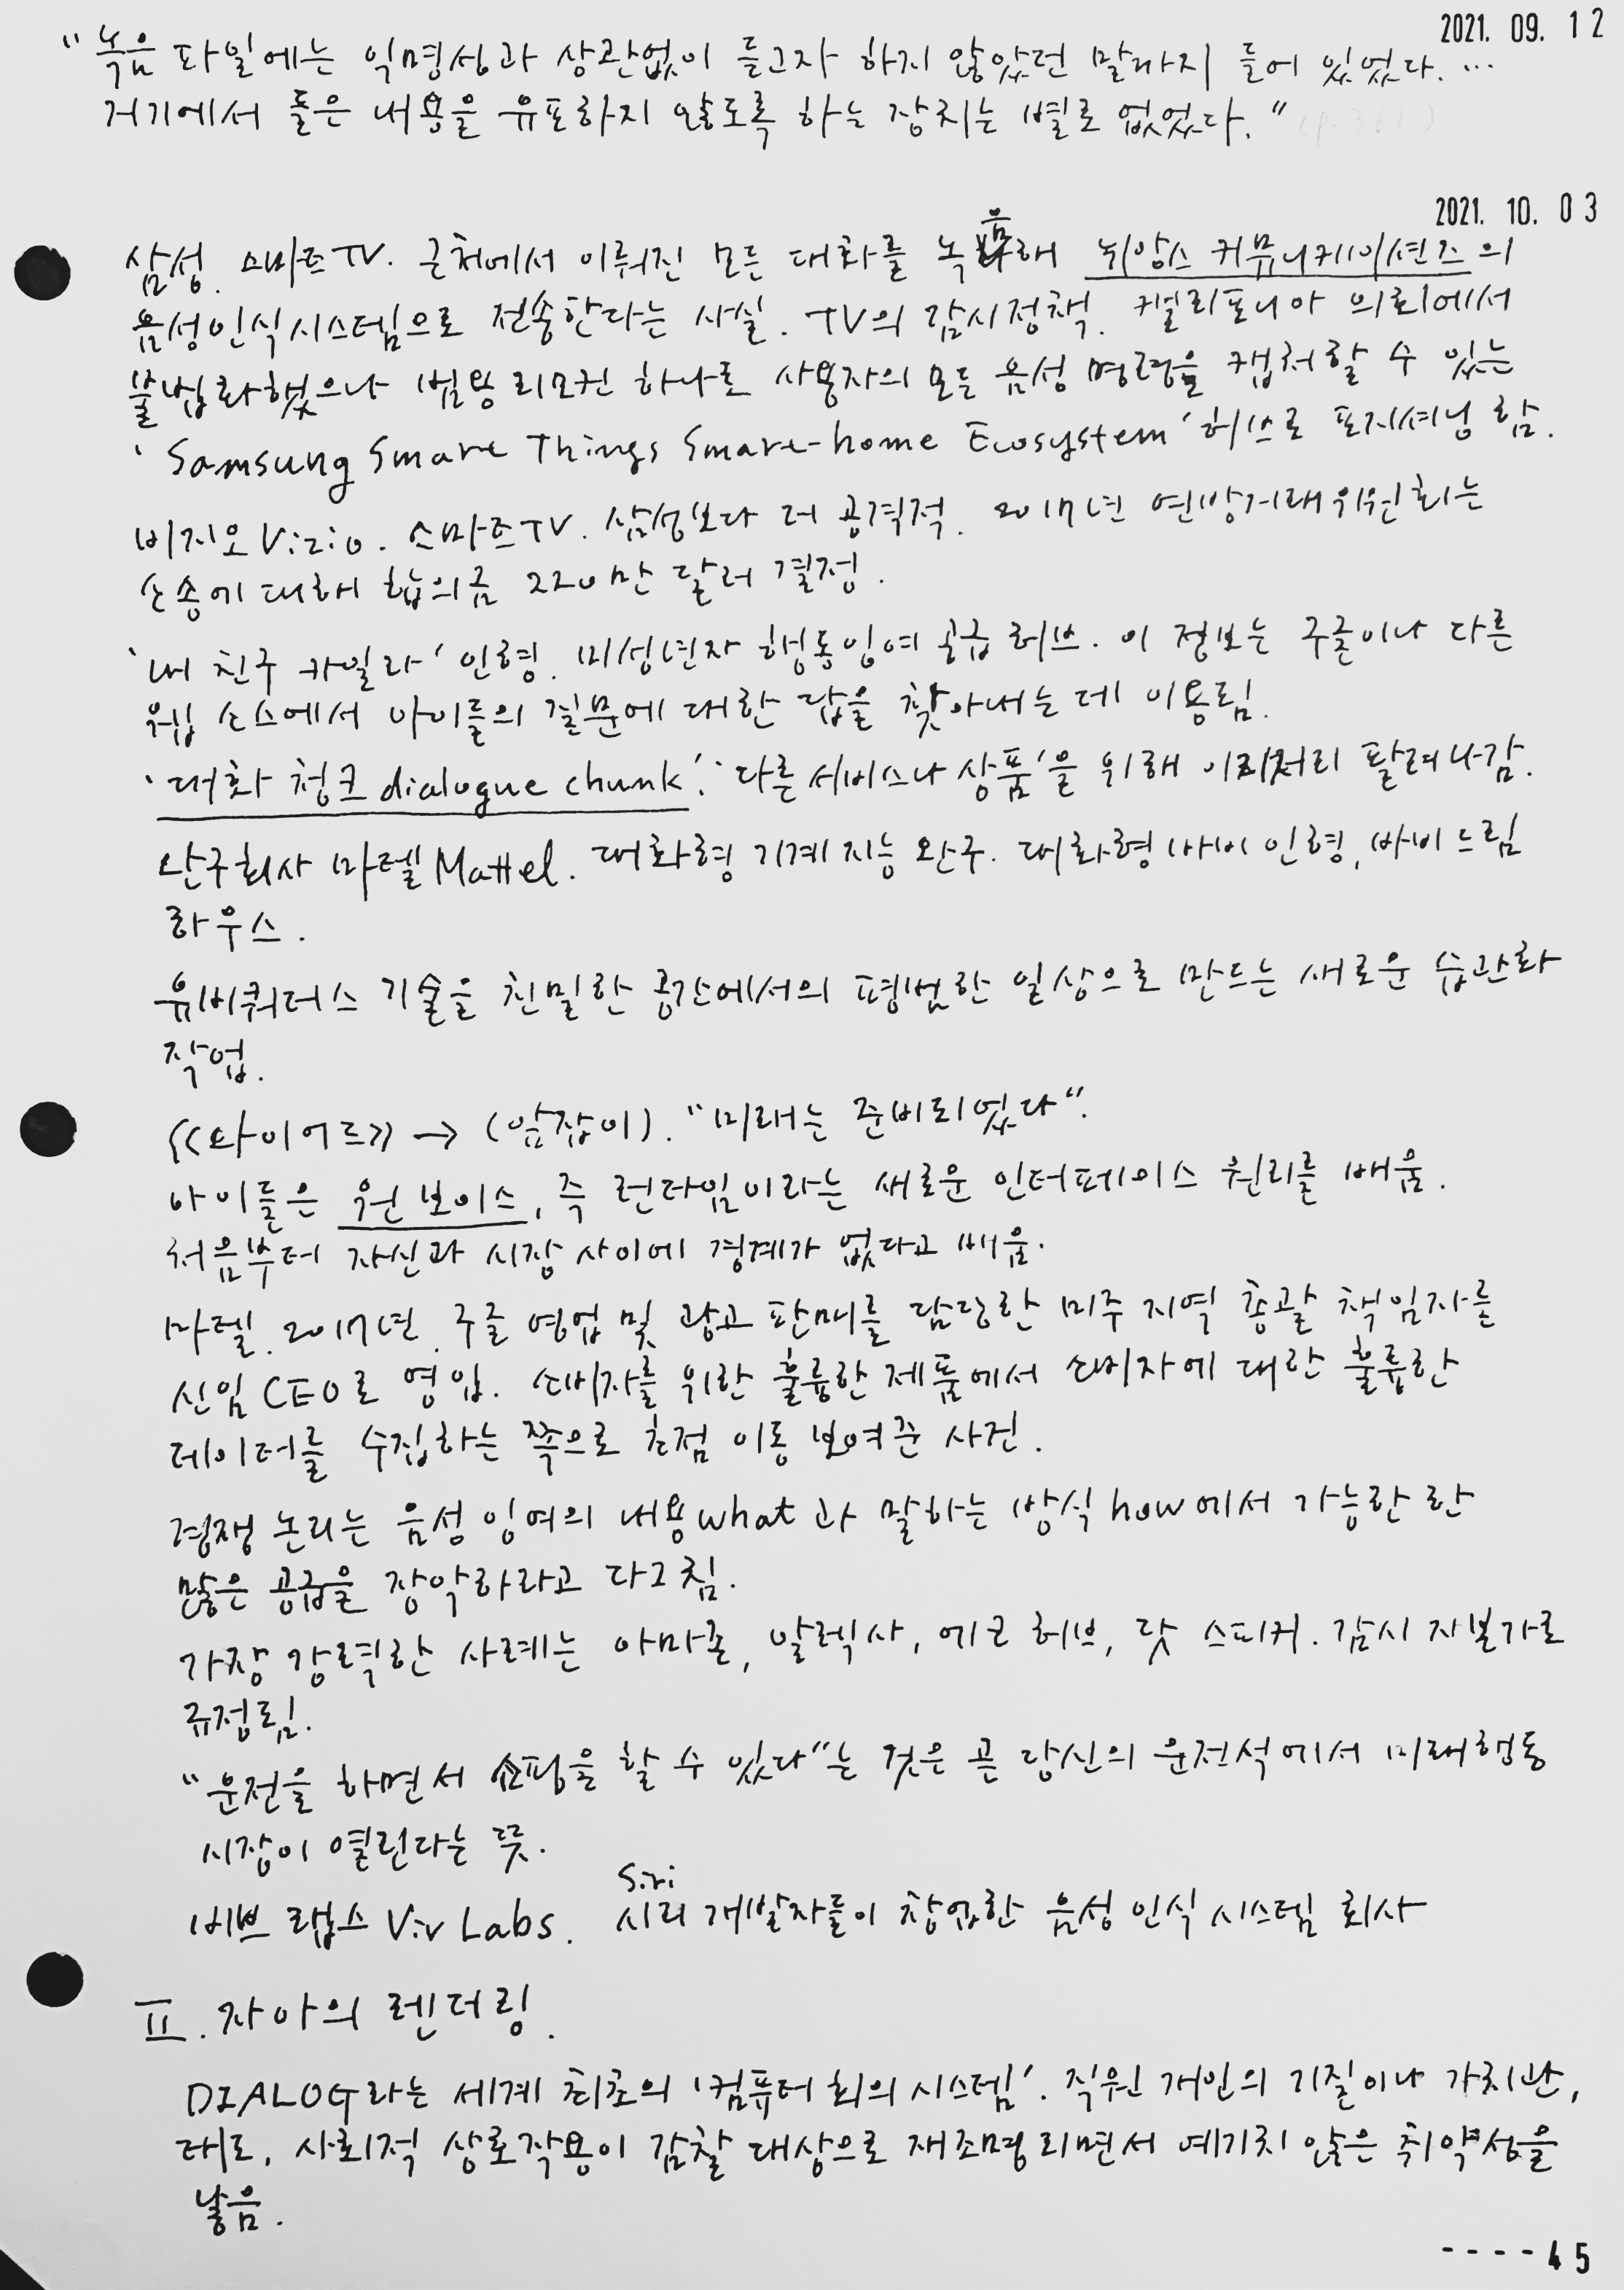 2021. 09. 12
" 녹음 파일에는 익명성과 상관없이 듣고자 하지 않았던 말까지 들어 있었다. …
거기에서 들은 내용을 유포하지 않도록 하는 장치는 별로 없었다. "
2021. 10. 03
삼성. 스마트TV. 근처에서 이뤄진 모든 대화를 녹음해 뉘앙스 커뮤니케이션즈의
음성인식시스템으로 전송한다는 사실. TV의 감시정책. 캘리포니아 의회에서
불법화했으나 범용 리모컨 하나로 사용자의 모든 음성 명령을 캡처할 수 있는
' Samsung Smart Things Smart-home Ecosystem ' 허브로 포지셔닝 함.
비지오 Vizio. 스마트TV. 삼성보다 더 공격적. 2017년 연방거래위원회는
소송에 대해 합의금 220만 달러 결정.
' 내 친구 카일라 ' 인형. 미성년자 행동잉여 공급 허브. 이 정보는 구글이나 다른
웹 소스에서 아이들의 질문에 대한 답을 찾아내는 데 이용됨.
' 대화 청크 dialogue chunk '. ' 다른 서비스나 상품 ' 을 위해 이리저리 팔려나감.
완구회사 마텔 Mattel. 대화형 기계지능 완구. 대화형 바비 인형, 바비 드림
하우스.
유비쿼터스 기술을 친밀한 공간에서의 평범한 일상으로 만드는 새로운 습관화
작업.
《와이어드》 → (앞잡이). " 미래는 준비되었다 ".
아이들은 원 보이스, 즉 런타임이라는 새로운 인터페이스 원리를 배움.
처음부터 자신과 시장 사이에 경계가 없다고 배움.
마텔. 2017년. 구글 영업 및 광고 판매를 담당한 미주 지역 총괄 책임자를
신임 CEO로 영입. 소비자를 위한 훌륭한 제품에서 소비자에 대한 훌륭한
데이터를 수집하는 쪽으로 초점 이동 보여준 사건.
경쟁 논리는 음성 잉여의 내용 what 과 말하는 방식 how에서 가능한 한
많은 공급을 장악하라고 다그침.
가장 강력한 사례는 아마존, 알렉사, 에코 허브, 닷 스피커. 감시 자본가로
규정됨.
" 운전을 하면서 쇼핑을 할 수 있다 " 는 것은 곧 당신의 운전석에서 미래행동
시장이 열린다는 뜻.
Siri
비브 랩스 Viv Labs. 시리 개발자들이 창업한 음성 인식 시스템 회사
Ⅱ. 자아의 렌더링.
DIALOG라는 세계 최초의 ' 컴퓨터 회의 시스템 '. 직원 개인의 기질이나 가치관,
태도, 사회적 상호작용이 감찰 대상으로 재조명되면서 예기치 않은 취약성을
낳음.
----45